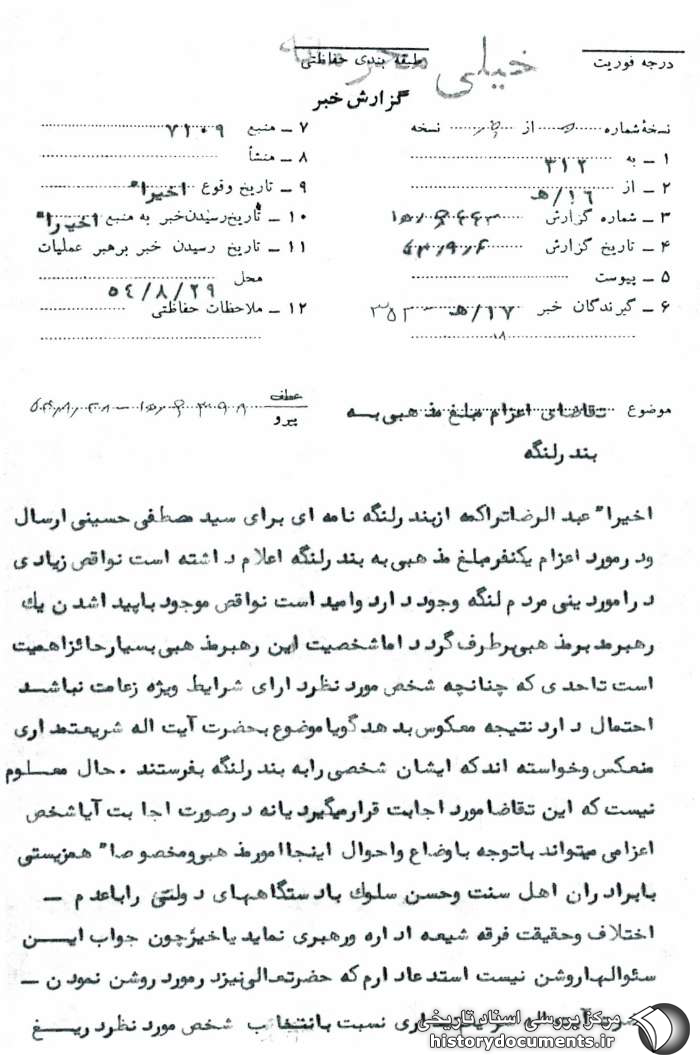 خیلی محرمانه
درجه فوریت
طبقه بندی حفاظتی
گزارش خبر
نسخهٔ شماره از نسخه
۱ ــ به ۳۱۲
۲ ــ از ۱۶/هـ
۳ ــ شماره گزارش
۴ ــ تاریخ گزارش
۵ ــ پیوست
۶ ــ گیرندگان خبر ۱۷/هـ
۷ ــ منبع ۷۲۰۹
۸ ــ منشأ
۹ ــ تاریخ وقوع اخیرا"
۱۰ ــ تاریخ رسیدن خبر به منبع اخیرا"
۱۱ ــ تاریخ رسیدن خبر برهبر عملیات
محل ۵٤/۸/۲۹
۱۲ ــ ملاحظات حفاظتی
موضوع تقاضای اعزام مبلغ مذهبی بـه
بندرلنگه
عطف
پیرو
اخیرا" عبدالرضاتراکمه ازبندرلنگه نامه ای برای سید مصطفی حسینی ارسال
ودرمورد اعزام یکنفرمبلغ مذهبی به بندرلنگه اعلام داشته است نواقص زیادی
دراموردینی مردم لنگه وجود دارد وامید است نواقص موجود باپیداشدن یك
رهبرمدبرمذهبی برطرف گردد اماشخصیت این رهبرمذهبی بسیارحائزاهمیت
است تاحدی که چنانچه شخص مورد نظردارای شرایط ویژه زعامت نباشـد
احتمال دارد نتیجه معکوس بدهد گویاموضوع بحضرت آیت اله شریعتمداری
منعکس وخواسته اندکه ایشان شخصی رابه بندرلنگه بفرستند . حال معـلوم
نیست که این تقاضامورد اجابت قرارمیگیرد یانه درصورت اجابت آیاشخص
اعزامی میتواند باتوجه باوضاع واحوال اینجاامورمذهبی ومخصوصا" همزیستی
بابرادران اهل سنت وحسن سلوك بادستگاههای دولتی راباعدم ــ
اختلاف وحقیقت فرقه شیعه اداره ورهبری نماید یاخیرچون جواب ایــن
سئوالهاروشن نیست استدعادارم که حضرتعالی نیزدرمورد روشن نمودن ــ
نسبت بانتخاب شخص مورد نظردریــغ
مرکز بررسی اسناد تاریخی
historydocuments.ir